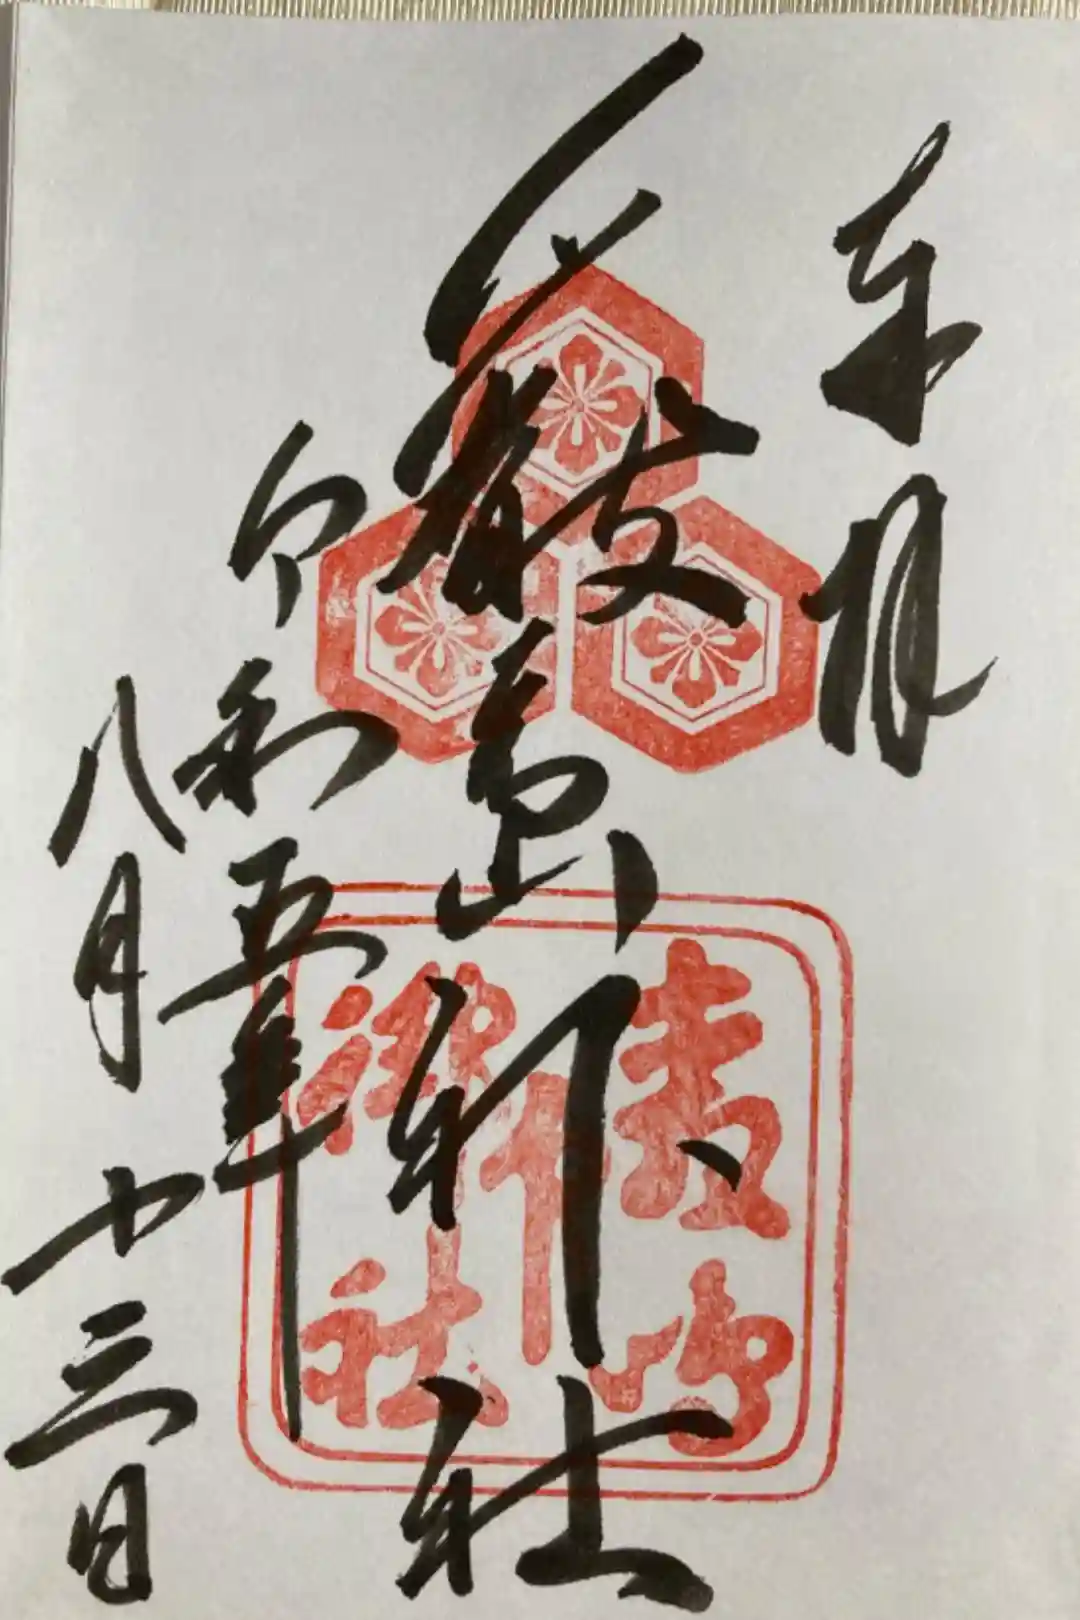 奉拝
厳島神社
令和五年
八月十三日
厳島
神社